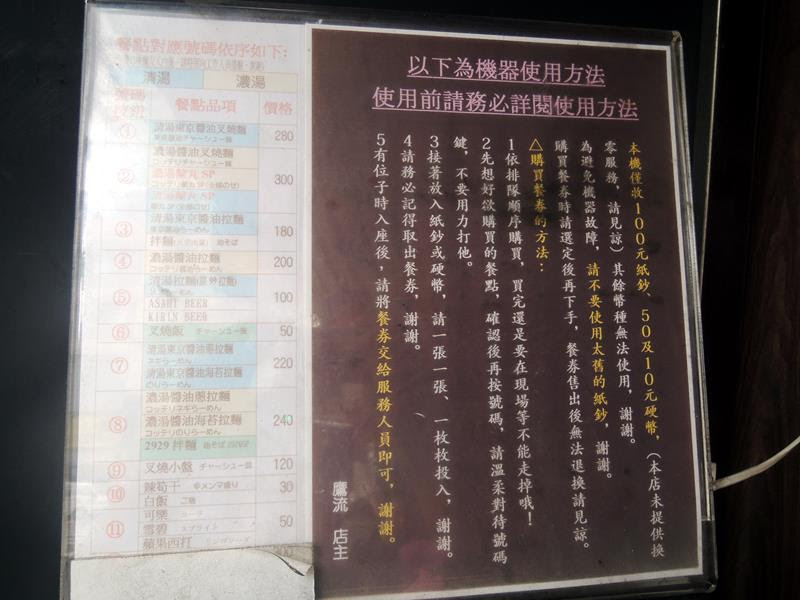 餐點對應號碼依序如下:
清湯 濃湯
號碼按鈕 餐點品項 價格
① 清湯東京醬油叉燒麵 280
東京醤油チャーシュー麺
② 濃湯醬油叉燒麵 300
コッテリチャーシュー麺
濃湯蘭丸SP
清湯蘭丸SP
③ 清湯東京醬油拉麵 180
東京醤油らーめん
拌麵 油そば
④ 濃湯醬油拉麵 200
⑤ 100
ASAHI BEER
KIRIN BEER
⑥ 叉燒飯 チャーシュー飯 50
⑦ 清湯東京醬油蔥拉麵 220
ネギらーめん
清湯東京醬油海苔拉麵
のりらーめん
⑧ 濃湯醬油蔥拉麵 240
コッテリネギらーめん
濃湯醬油海苔拉麵
コッテリのりらーめん
2929 拌麵
⑨ 叉燒小盤 120
⑩ 辣筍干 辛メンマ盛り 30
白飯 ご飯
⑪ 可樂 コーラ 50
雪碧 スプライト
蘋果西打
以下為機器使用方法
使用前請務必詳閱使用方法
本機僅收100元紙鈔、50及10元硬幣,(本店未提供換
零服務,請見諒)其餘幣種無法使用,謝謝。
為避免機器故障,請不要使用太舊的紙鈔,謝謝。
購買餐券時請選定後再下手,餐券售出後無法退換請見諒。
△購買餐券的方法:
1依排隊順序購買,買完還是要在現場等不能走掉哦!
2先想好欲購買的餐點,確認後再按號碼,請溫柔對待號碼
鍵,不要用力打他。
3接著放入紙鈔或硬幣,請一張一張、一枚枚投入,謝謝。
4請務必記得取出餐券,謝謝。
5有位子時入座後,請將餐券交給服務人員即可,謝謝。
鷹流 店主